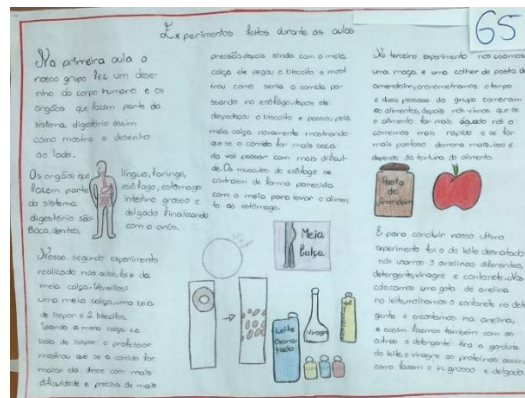 Experimentos feitos durante as aulas
65
Na primeira aula o
nosso grupo fez um dese-
nho do corpo humano e os
orgãos que fazem parte do
sistema digestório assim
como mostra o desenho
ao lado.
Os orgãos que
fazem parte
do sistema
digestório são
Boca, dentes,
língua, faringe,
esôfago, estômago
intestino grosso e
delgado finalizando
com o anus.
Nosso segundo experimento
realizado nas aulas foi da
meia calça. Utilizamos
uma meia calça, uma bola
de isopor e 2 biscoitos.
Usando a meia calça e a
bola de isopor o professor
mostrou que se a comida for
maior ela desce com mais
dificuldade e precisa de mais
pressão depois ainda com a meia
calça ele pegou o biscoito e most
trou como seria a comida pa-
ssando no esôfago, depois ele
despedaçou o biscoito e passou pela
meia calça novamente mostrando
que se a comida for mais seca
ela vai passar com mais dificul-
dade. Os musculos do esôfago se
contraem de forma parecida
com a meia para levar o alimen
to ao estômago.
Meia
Calça
Leite
Desna-
tado
Vinagre
No terceiro experimento nós usamos
uma maça e uma colher de pasta de
amendoim, cronometramos o tempo
e duas pessoas do grupo comeram
os alimentos, depois nós vimos que se
o alimento for mais aguado nós o
comemos mais rapido e se for
mais pastoso demora mais, isso
depende da textura do alimento.
Pasta
de
Amendoim
E para concluir nosso ultimo
experimento foi o do leite desnatado
nós usamos 3 anelinas diferentes,
detergente, vinagre e cotonete. Nós
colocamos uma gota de anelina
no leite, molhamos o cotonete no dete
gente e encostamos na anelina,
e assim fizemos também com as
outras o detergente tira a gordura
do leite, e vinagre as proteínas assim
como fazem o in. grosso e delgado